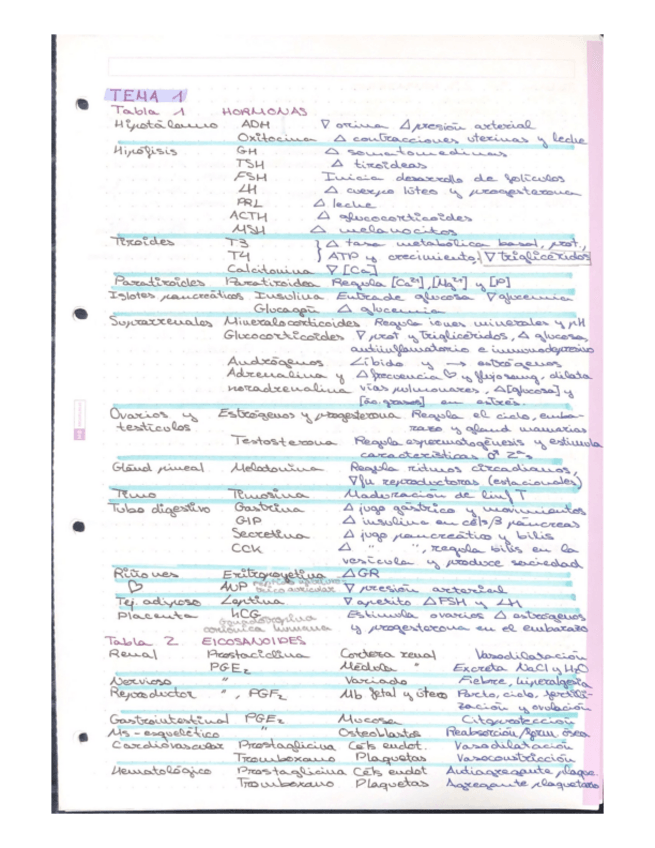 TEMA 1
Tabla 1 HORMONAS
Hipotálamo ADH ▽ orina △ presión arterial
Oxitocina △ contracciones uterinas y leche
Hipófisis GH △ somatomedinas
TSH △ tiroideas
FSH Inicia desarrollo de folículos
LH △ cuerpo lúteo y progesterona
PRL △ leche
ACTH △ glucocorticoides
MSH △ melanocitos
Tiroides T3 } △ tasa metabólica basal, prot.,
T4 ATP y crecimiento, ▽ triglicéridos
Calcitonina ▽ [Ca]
Paratiroides Paratiroidea Regula [Ca²⁺], [Mg²⁺] y [P]
Islotes pancreáticos Insulina Entrada glucosa ▽ glucemia
Glucagón △ glucemia
Suprarrenales Mineralocorticoides Regula iones minerales y pH
Glucocorticoides ▽ prot y triglicéridos, △ glucosa,
antiinflamatorio e inmunodepresivo
Andrógenos Líbido y → estrógenos
Adrenalina y △ frecuencia ♡ y flujo sang, dilata
noradrenalina vías pulmonares, △ [glucosa] y
[ác. grasos] en estrés.
Ovarios y Estrógenos y progesterona Regula el ciclo, emba-
testículos razo y gland mamarias
Testosterona Regula espermatogénesis y estimula
características ♂ 2ªˢ
Glánd pineal Melatonina Regula ritmos circadianos,
▽ fu reproductoras (estacionales)
Timo Timosina Maduración de linf T
Tubo digestivo Gastrina △ jugo gástrico y movimientos
GIP △ insulina en céls β páncreas
Secretina △ jugo pancreático y bilis
CCK △ " ", regula bilis en la
vesícula y produce saciedad
Riñones Eritropoyetina △ GR
♡ péptido natriurético auricular ▽ presión arterial
Tej. adiposo Leptina ▽ apetito △ FSH y LH
Placenta HCG Estimula ovarios △ estrógenos
gonadotropina coriónica humana y progesterona en el embarazo
Tabla 2 EICOSANOIDES
Renal Prostaciclina Corteza renal Vasodilatación
PGE₂ Médula " Excreta NaCl y H₂O
Nervioso " Variado Fiebre, hiperalgesia
Reproductor ", PGF₂ Mb fetal y útero Parto, ciclo, fertili-
zación y ovulación
Gastrointestinal PGE₂ Mucosa Citoprotección
Ms-esquelético " Osteoblastos Reabsorción/form. ósea
Cardiovascular Prostaglicina Céls endot. Vasodilatación
Tromboxano Plaquetas Vasoconstricción
Hematológico Prostaglicina Céls endot Antiagregante plaque.
Tromboxano Plaquetas Agregante plaquetario